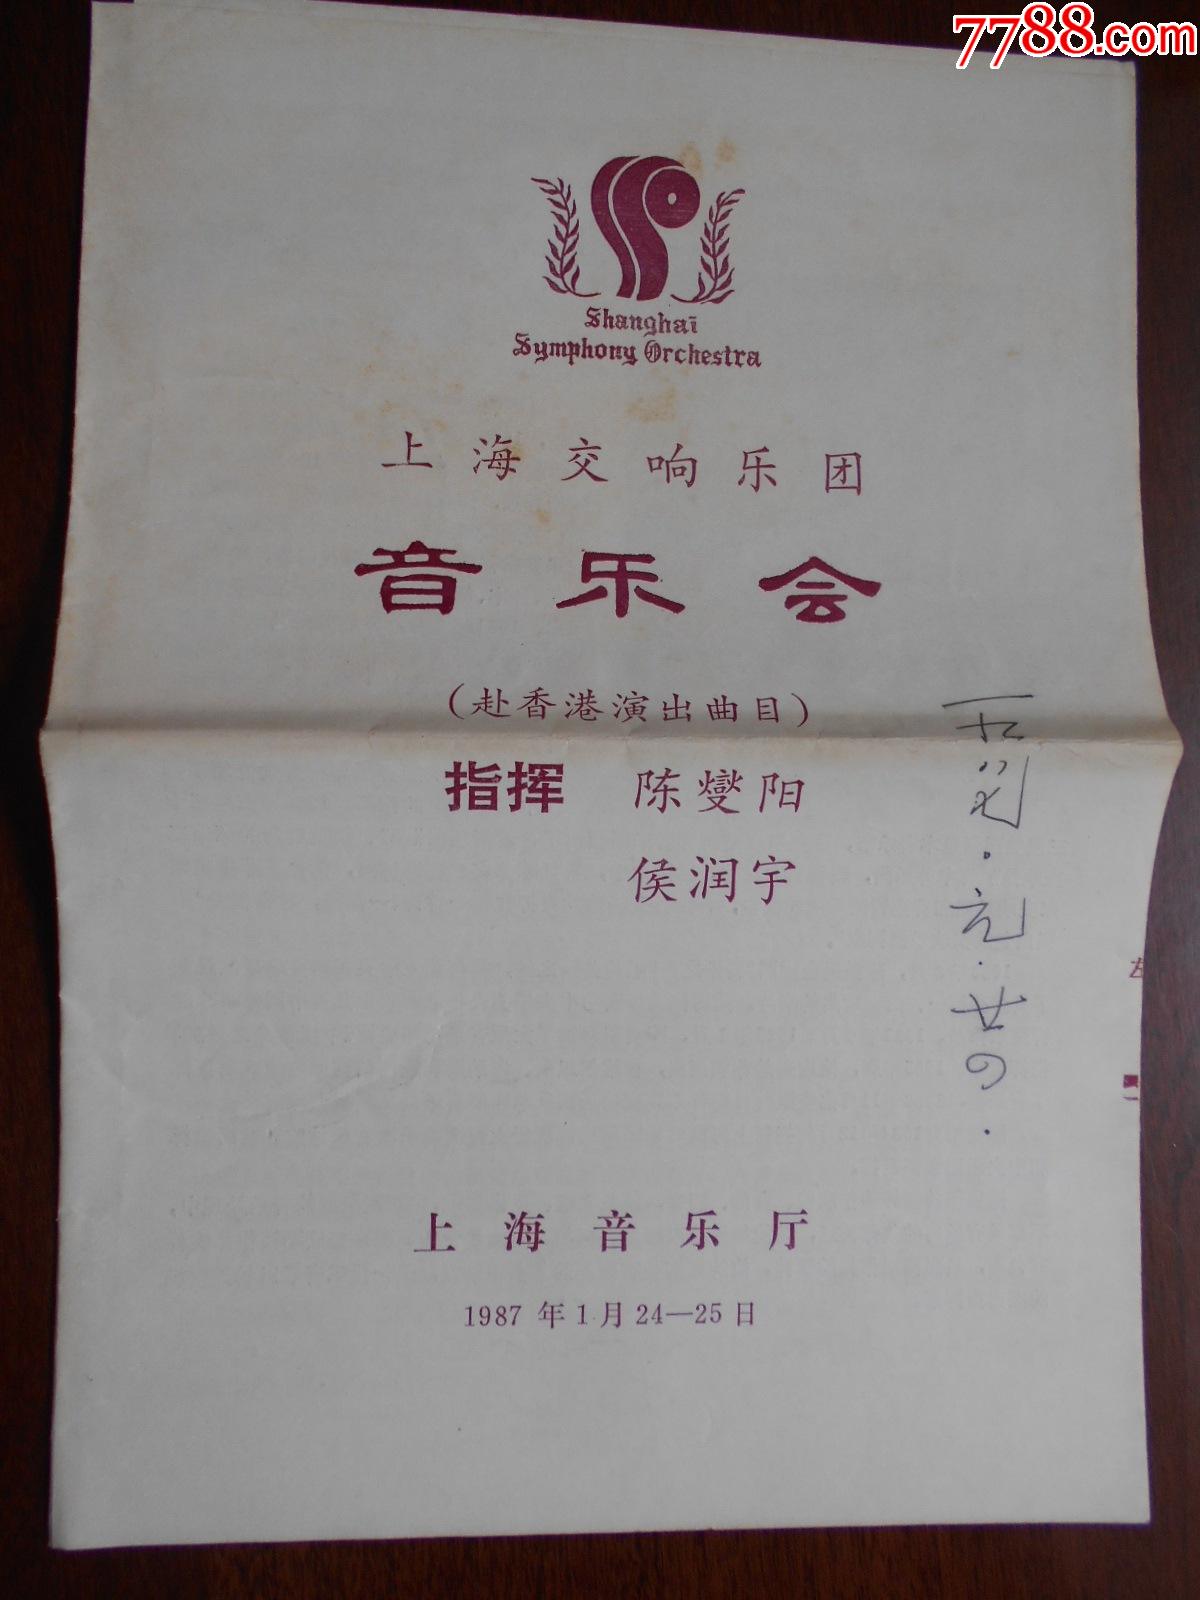 7788.com
Shanghai
Symphony Orchestra
上海交响乐团
音乐会
(赴香港演出曲目)
指挥 陈燮阳
侯润宇
一九八七·元·廿四·
上海音乐厅
1987年1月24—25日
左